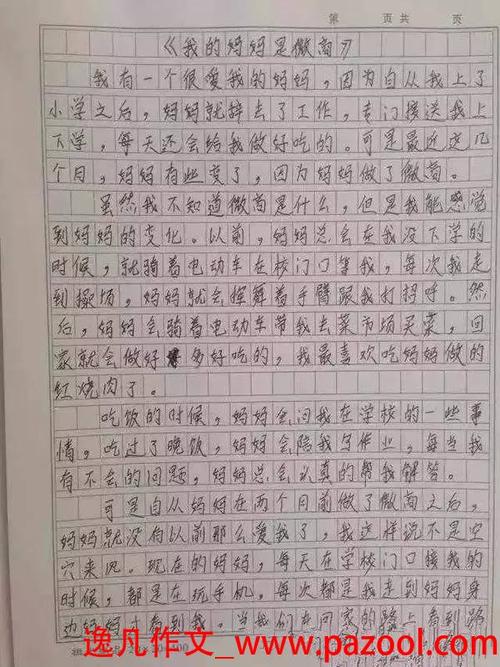 第 页 共 页
《我的妈妈是微商》
我有一个很爱我的妈妈，因为自从我上了
小学之后，妈妈就辞去了工作，专门接送我上
下学，每天还会给我做好吃的。可是最近这几
个月，妈妈有些变了，因为妈妈做了微商。
虽然我不知道微商是什么，但是我能感觉
到妈妈的变化。以前，妈妈总会在我没下学的
时候，就骑着电动车在校门口等我，每次我走
到操场，妈妈就会挥舞着手臂跟我打招呼。然
后，妈妈会骑着电动车带我去菜市场买菜，回
家就会做好多好吃的，我最喜欢吃妈妈做的
红烧肉了。
吃饭的时候，妈妈会问我在学校的一些事
情，吃过了晚饭，妈妈会陪我写作业，每当我
有不会的问题，妈妈总会认真的帮我解答。
可是自从妈妈在两个月前做了微商之后，
妈妈就没有以前那么爱我了，我这样说不是空
穴来风。现在的妈妈，每天在学校门口接我的
时候，都是在玩手机，每次都是我走到妈妈身
边妈妈才看到我。当我们在回家的路上看到路
逸凡作文_www.pazool.com